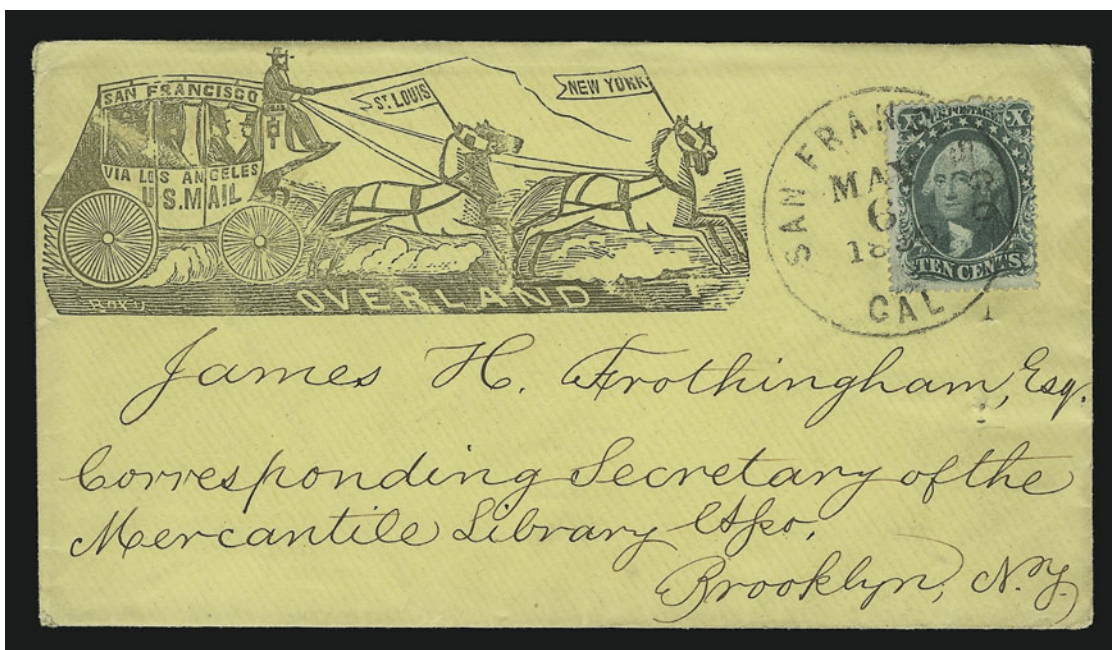 SAN FRANCISCO
VIA LOS ANGELES
U.S. MAIL
ST. LOUIS
NEW YORK
OVERLAND
SAN FRAN
MAY
6
18
CAL
U.S. POSTAGE
X X
TEN CENTS
James H. Frothingham, Esq.
Corresponding Secretary of the
Mercantile Library
Brooklyn, N.Y.